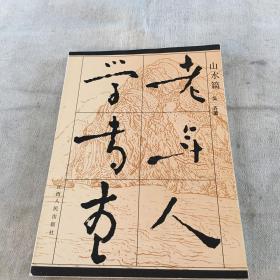 老年人
学书画
山水篇
江西人民出版社